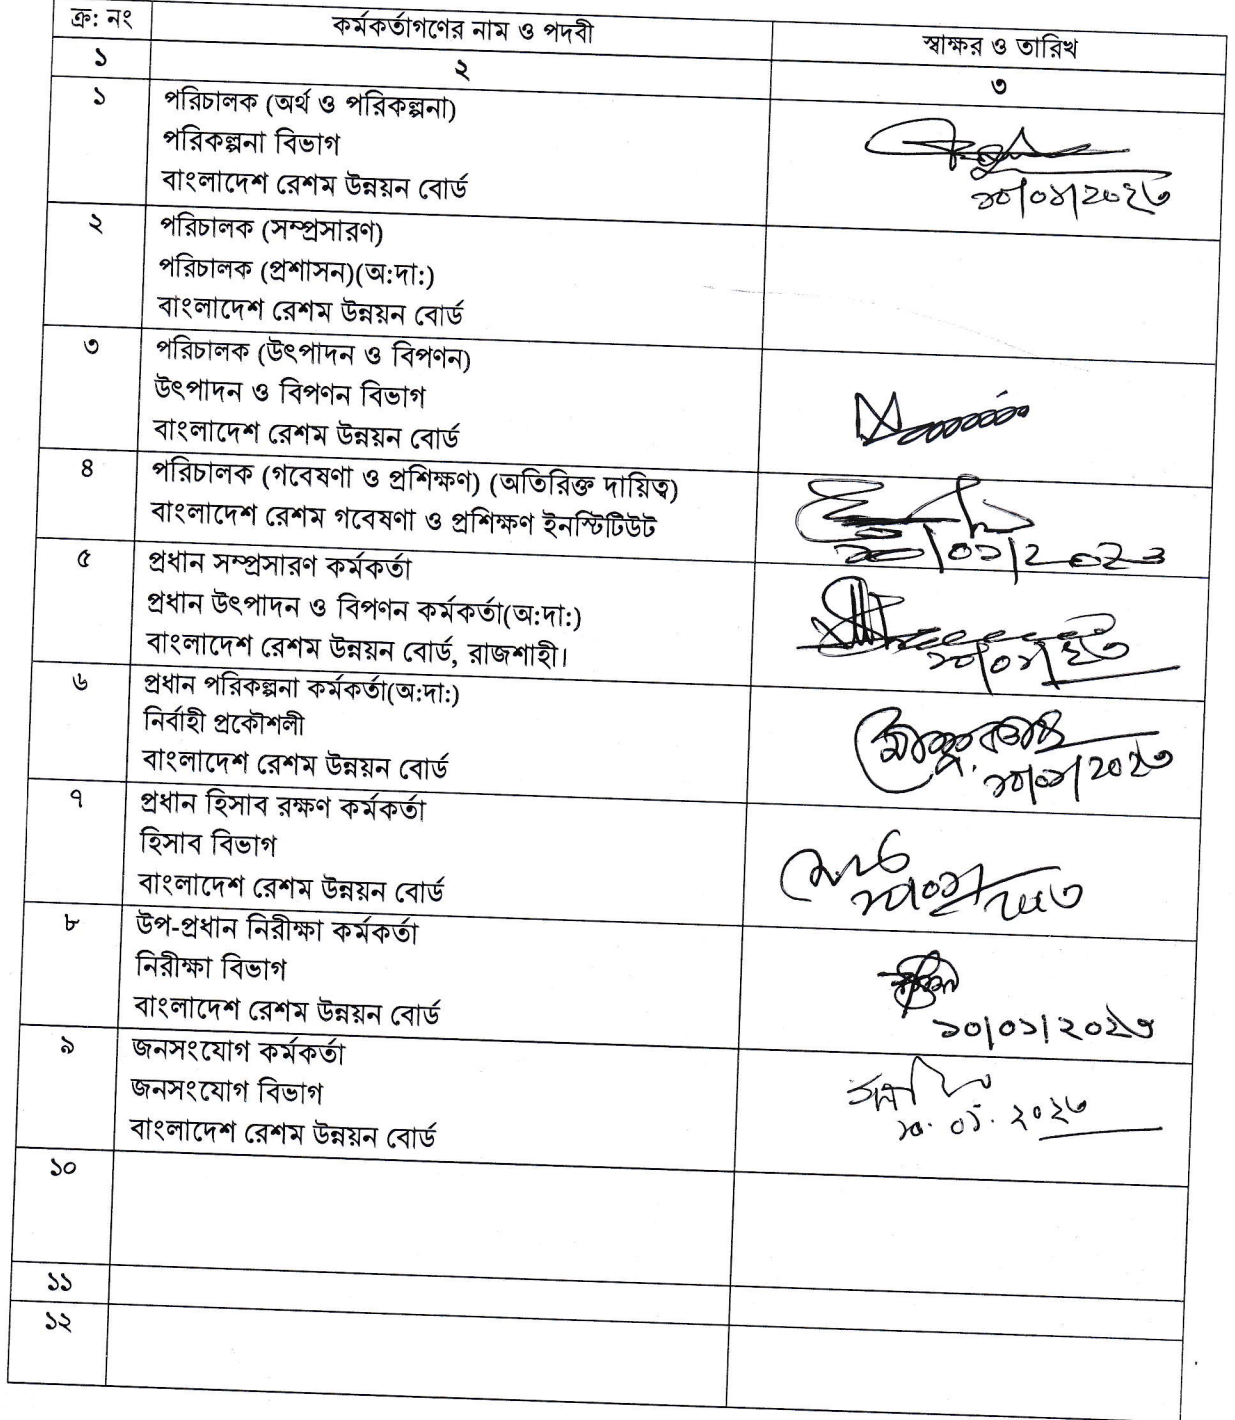 ক্র: নং কর্মকর্তাগণের নাম ও পদবী স্বাক্ষর ও তারিখ
১ ২ ৩
১ পরিচালক (অর্থ ও পরিকল্পনা)
পরিকল্পনা বিভাগ
বাংলাদেশ রেশম উন্নয়ন বোর্ড
১০/০১/২০২৩
২ পরিচালক (সম্প্রসারণ)
পরিচালক (প্রশাসন)(অ:দা:)
বাংলাদেশ রেশম উন্নয়ন বোর্ড
৩ পরিচালক (উৎপাদন ও বিপণন)
উৎপাদন ও বিপণন বিভাগ
বাংলাদেশ রেশম উন্নয়ন বোর্ড
৪ পরিচালক (গবেষণা ও প্রশিক্ষণ) (অতিরিক্ত দায়িত্ব)
বাংলাদেশ রেশম গবেষণা ও প্রশিক্ষণ ইনস্টিটিউট
১০/০১/২০২৩
৫ প্রধান সম্প্রসারণ কর্মকর্তা
প্রধান উৎপাদন ও বিপণন কর্মকর্তা(অ:দা:)
বাংলাদেশ রেশম উন্নয়ন বোর্ড, রাজশাহী।
১০/০১/২৩
৬ প্রধান পরিকল্পনা কর্মকর্তা(অ:দা:)
নির্বাহী প্রকৌশলী
বাংলাদেশ রেশম উন্নয়ন বোর্ড
১০/০১/২০২৩
৭ প্রধান হিসাব রক্ষণ কর্মকর্তা
হিসাব বিভাগ
বাংলাদেশ রেশম উন্নয়ন বোর্ড
৮ উপ-প্রধান নিরীক্ষা কর্মকর্তা
নিরীক্ষা বিভাগ
বাংলাদেশ রেশম উন্নয়ন বোর্ড
১০/০১/২০২৩
৯ জনসংযোগ কর্মকর্তা
জনসংযোগ বিভাগ
বাংলাদেশ রেশম উন্নয়ন বোর্ড
১০.০১.২০২৩
১০
১১
১২